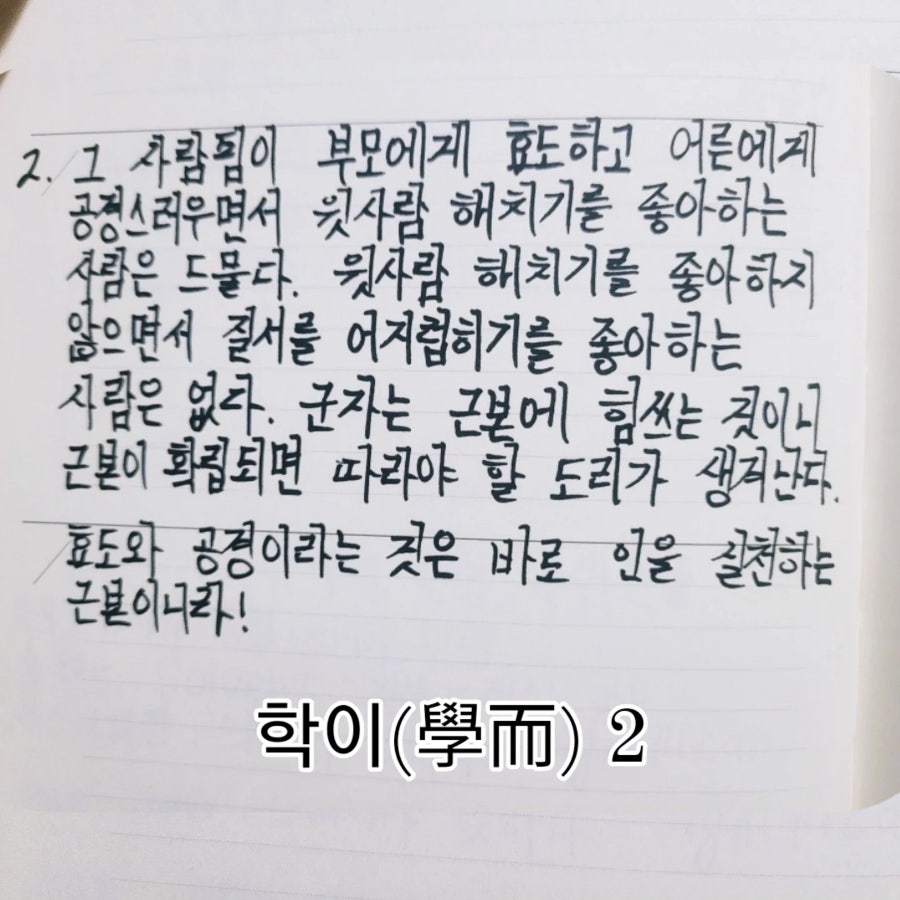 2. 그 사람됨이 부모에게 효도하고 어른에게
공경스러우면서 윗사람 해치기를 좋아하는
사람은 드물다. 윗사람 해치기를 좋아하지
않으면서 질서를 어지럽히기를 좋아하는
사람은 없다. 군자는 근본에 힘쓰는 것이니
근본이 확립되면 따라야 할 도리가 생겨난다.
효도와 공경이라는 것은 바로 인을 실천하는
근본이니라!
학이(學而) 2